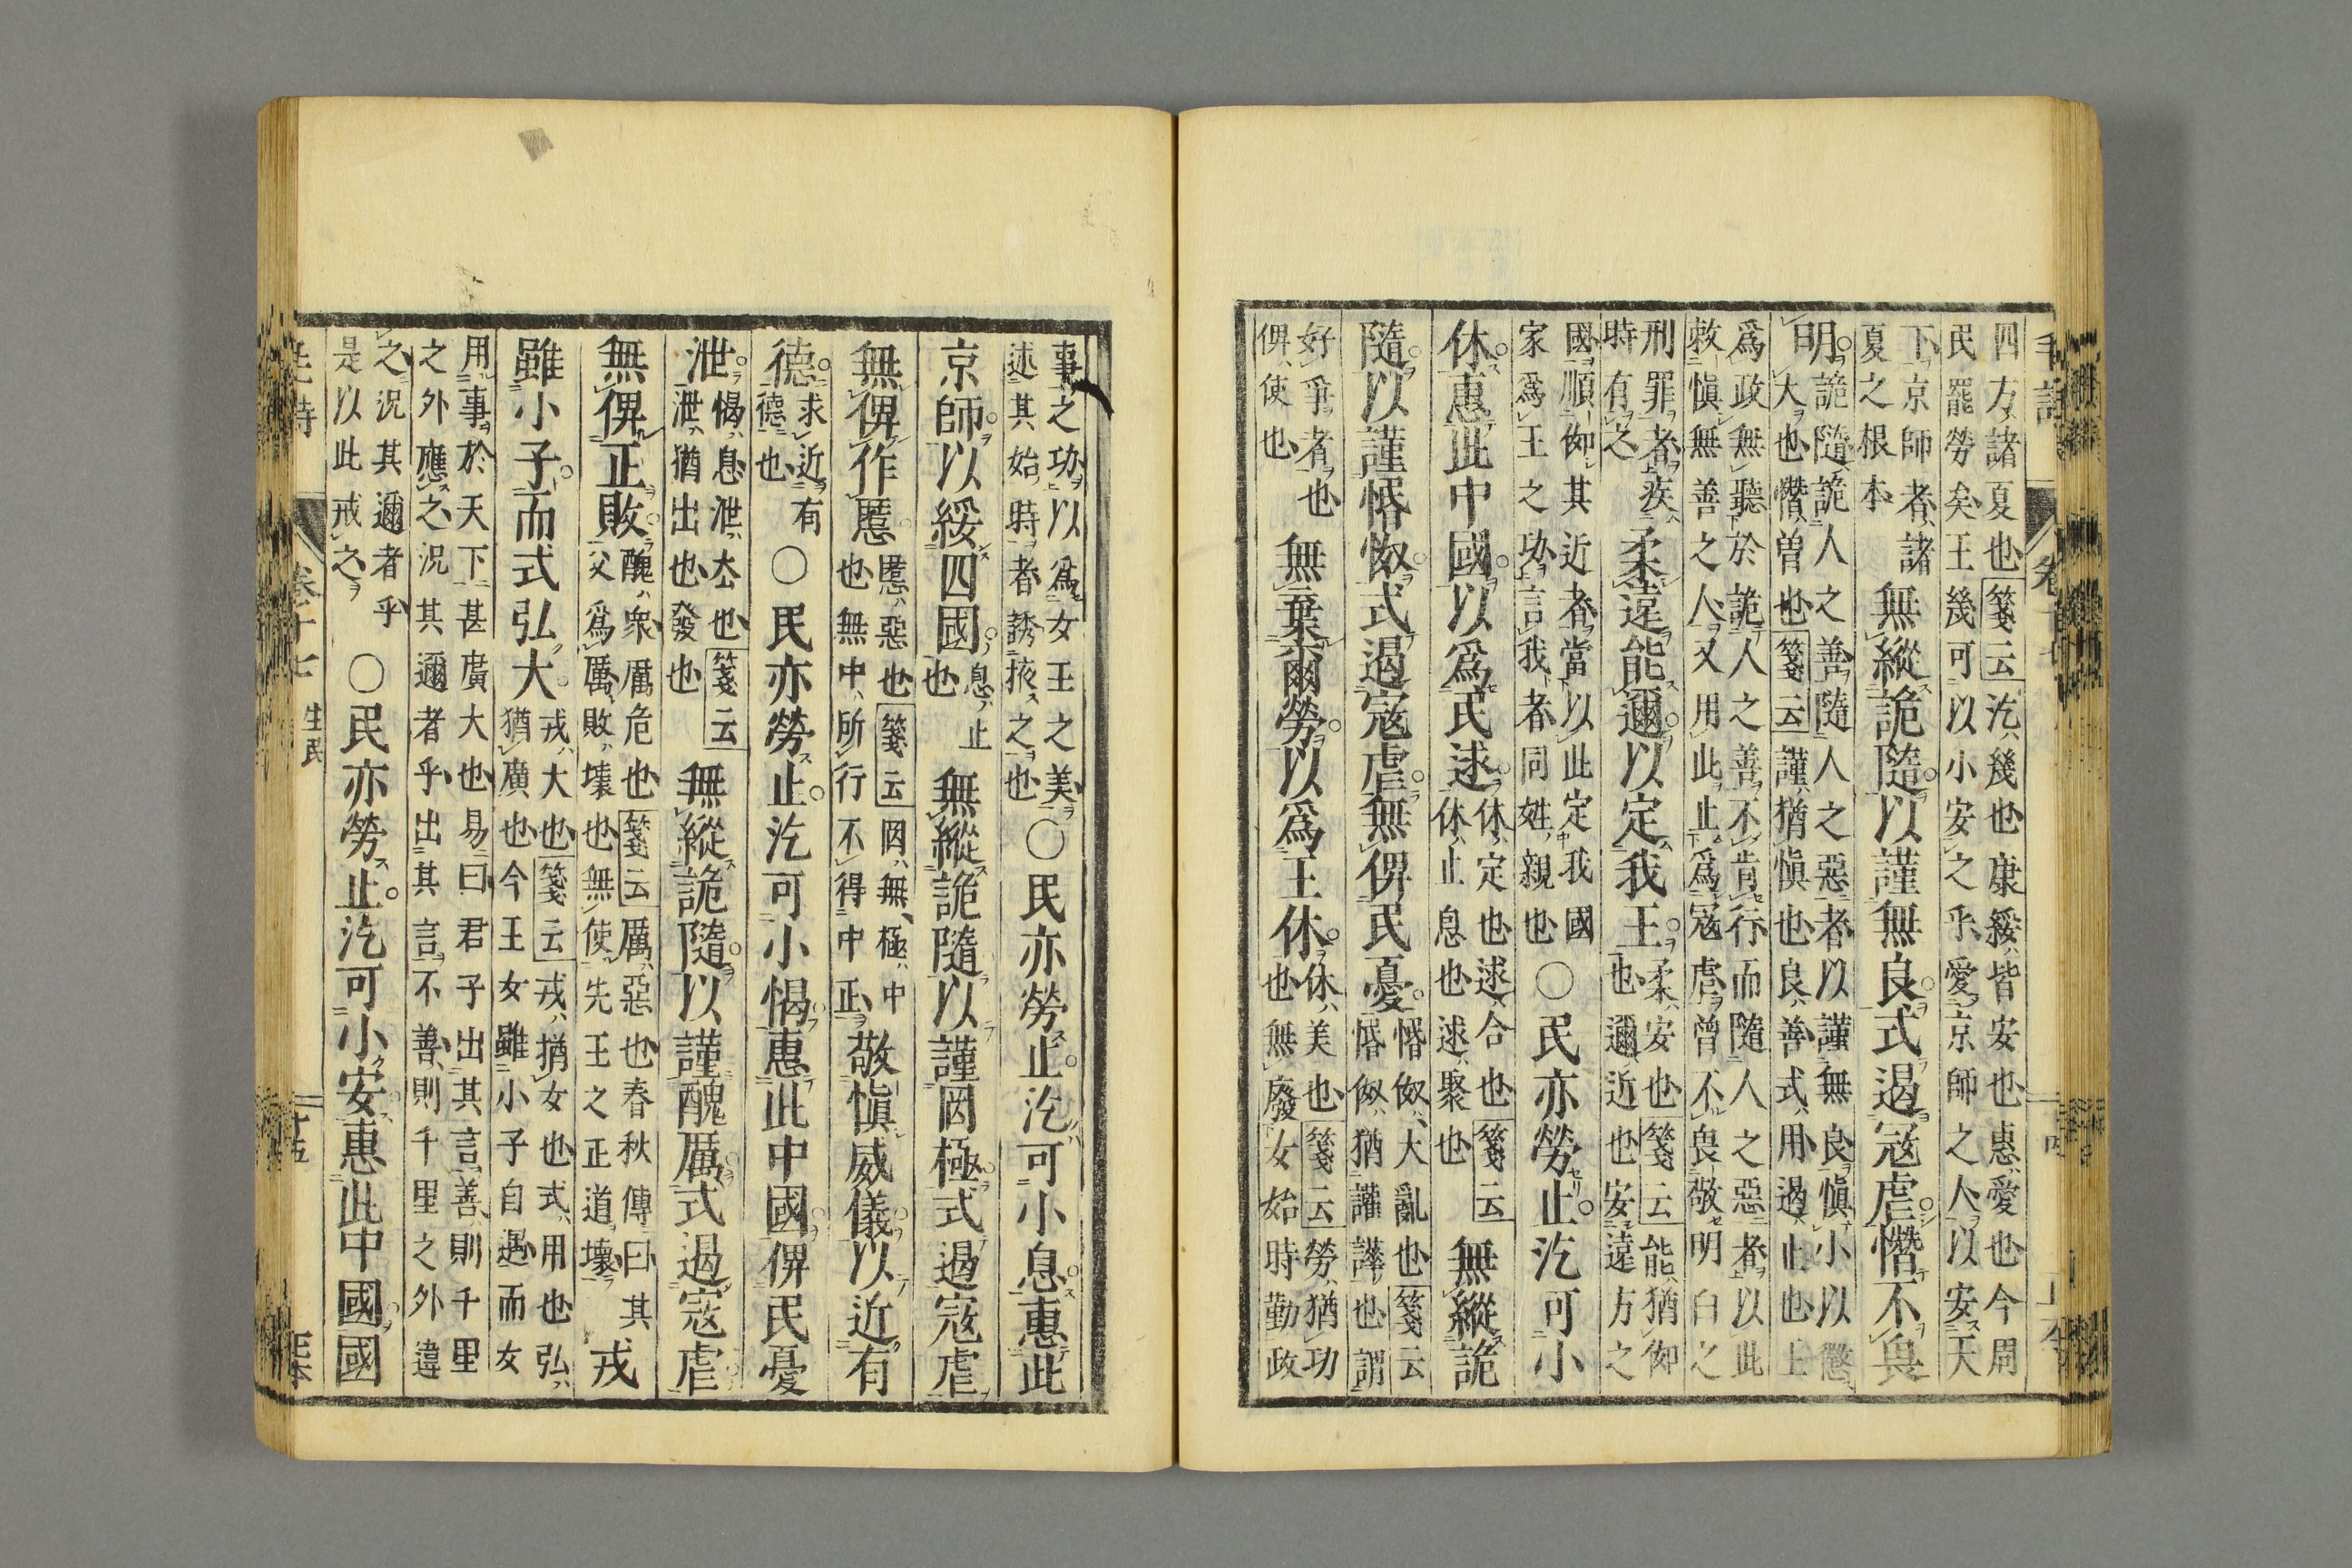 四方、諸夏也箋云汔、幾也康綏、皆安也惠、愛也今周
民罷勞矣王幾可以小安之乎愛京師之人以安天
下京師者、諸
夏之根本
無縱詭隨。以謹無良。式遏寇虐。憯不畏
明。
詭隨、詭人之善隨人之惡者以謹無良愼小以懲
大也憯、曾也箋云謹、猶愼也良、善式、用遏、止也王
爲政無聽於詭人之善不肯行而隨人之惡者以此
敕愼無善之人又用此止爲寇虐曾不畏敬明白之
刑罪者疾
時有之
柔遠能邇。以定我王。
柔、安也箋云能、猶伽
也邇、近也安遠方之
國順伽其近者當以此定我國
家爲王之功言我者同姓親也
○民亦勞止。汔可小
休。惠此中國。以爲民逑。
休、定也逑、合也箋云
休、止息也逑、聚也
無縱詭
隨。以謹惽怓。式遏寇虐。無俾民憂。
惽怓、大亂也箋云
惽怓、猶讙譁也謂
好爭者也
俾、使也
無棄爾勞。以爲王休。
休、美也箋云勞、猶功
也無廢女始時勤政
毛詩 卷十七
事之功以爲女王之美
述其始時者誘掖之也
○民亦勞止。汔可小息。惠此
京師。以綏四國。
息、止
也
無縱詭隨。以謹罔極。式遏寇虐。
無俾作慝。
慝、惡也箋云罔、無、極、中
也無中、所行不得中正
敬愼威儀。以近有
德。
求近有
德也
○民亦勞止。汔可小愒。惠此中國。俾民憂
泄。
愒、息泄、去也箋云
泄、猶出也發也
無縱詭隨。以謹醜厲。式遏寇虐。
無俾正敗。
醜、衆厲危也箋云厲、惡也春秋傳曰其
父爲厲、敗、壞也無使先王之正道壞
戎
雖小子。而式弘大。
戎、大也箋云戎、猶女也式、用也弘、
猶廣也今王女雖小子自遇而女
用事於天下甚廣大也易曰君子出其言善、則千里
之外應之況其邇者乎出其言不善、則千里之外違
之況其邇者乎
是以此戒之
○民亦勞止。汔可小安。惠此中國。國
毛詩 卷十七 生民 十五